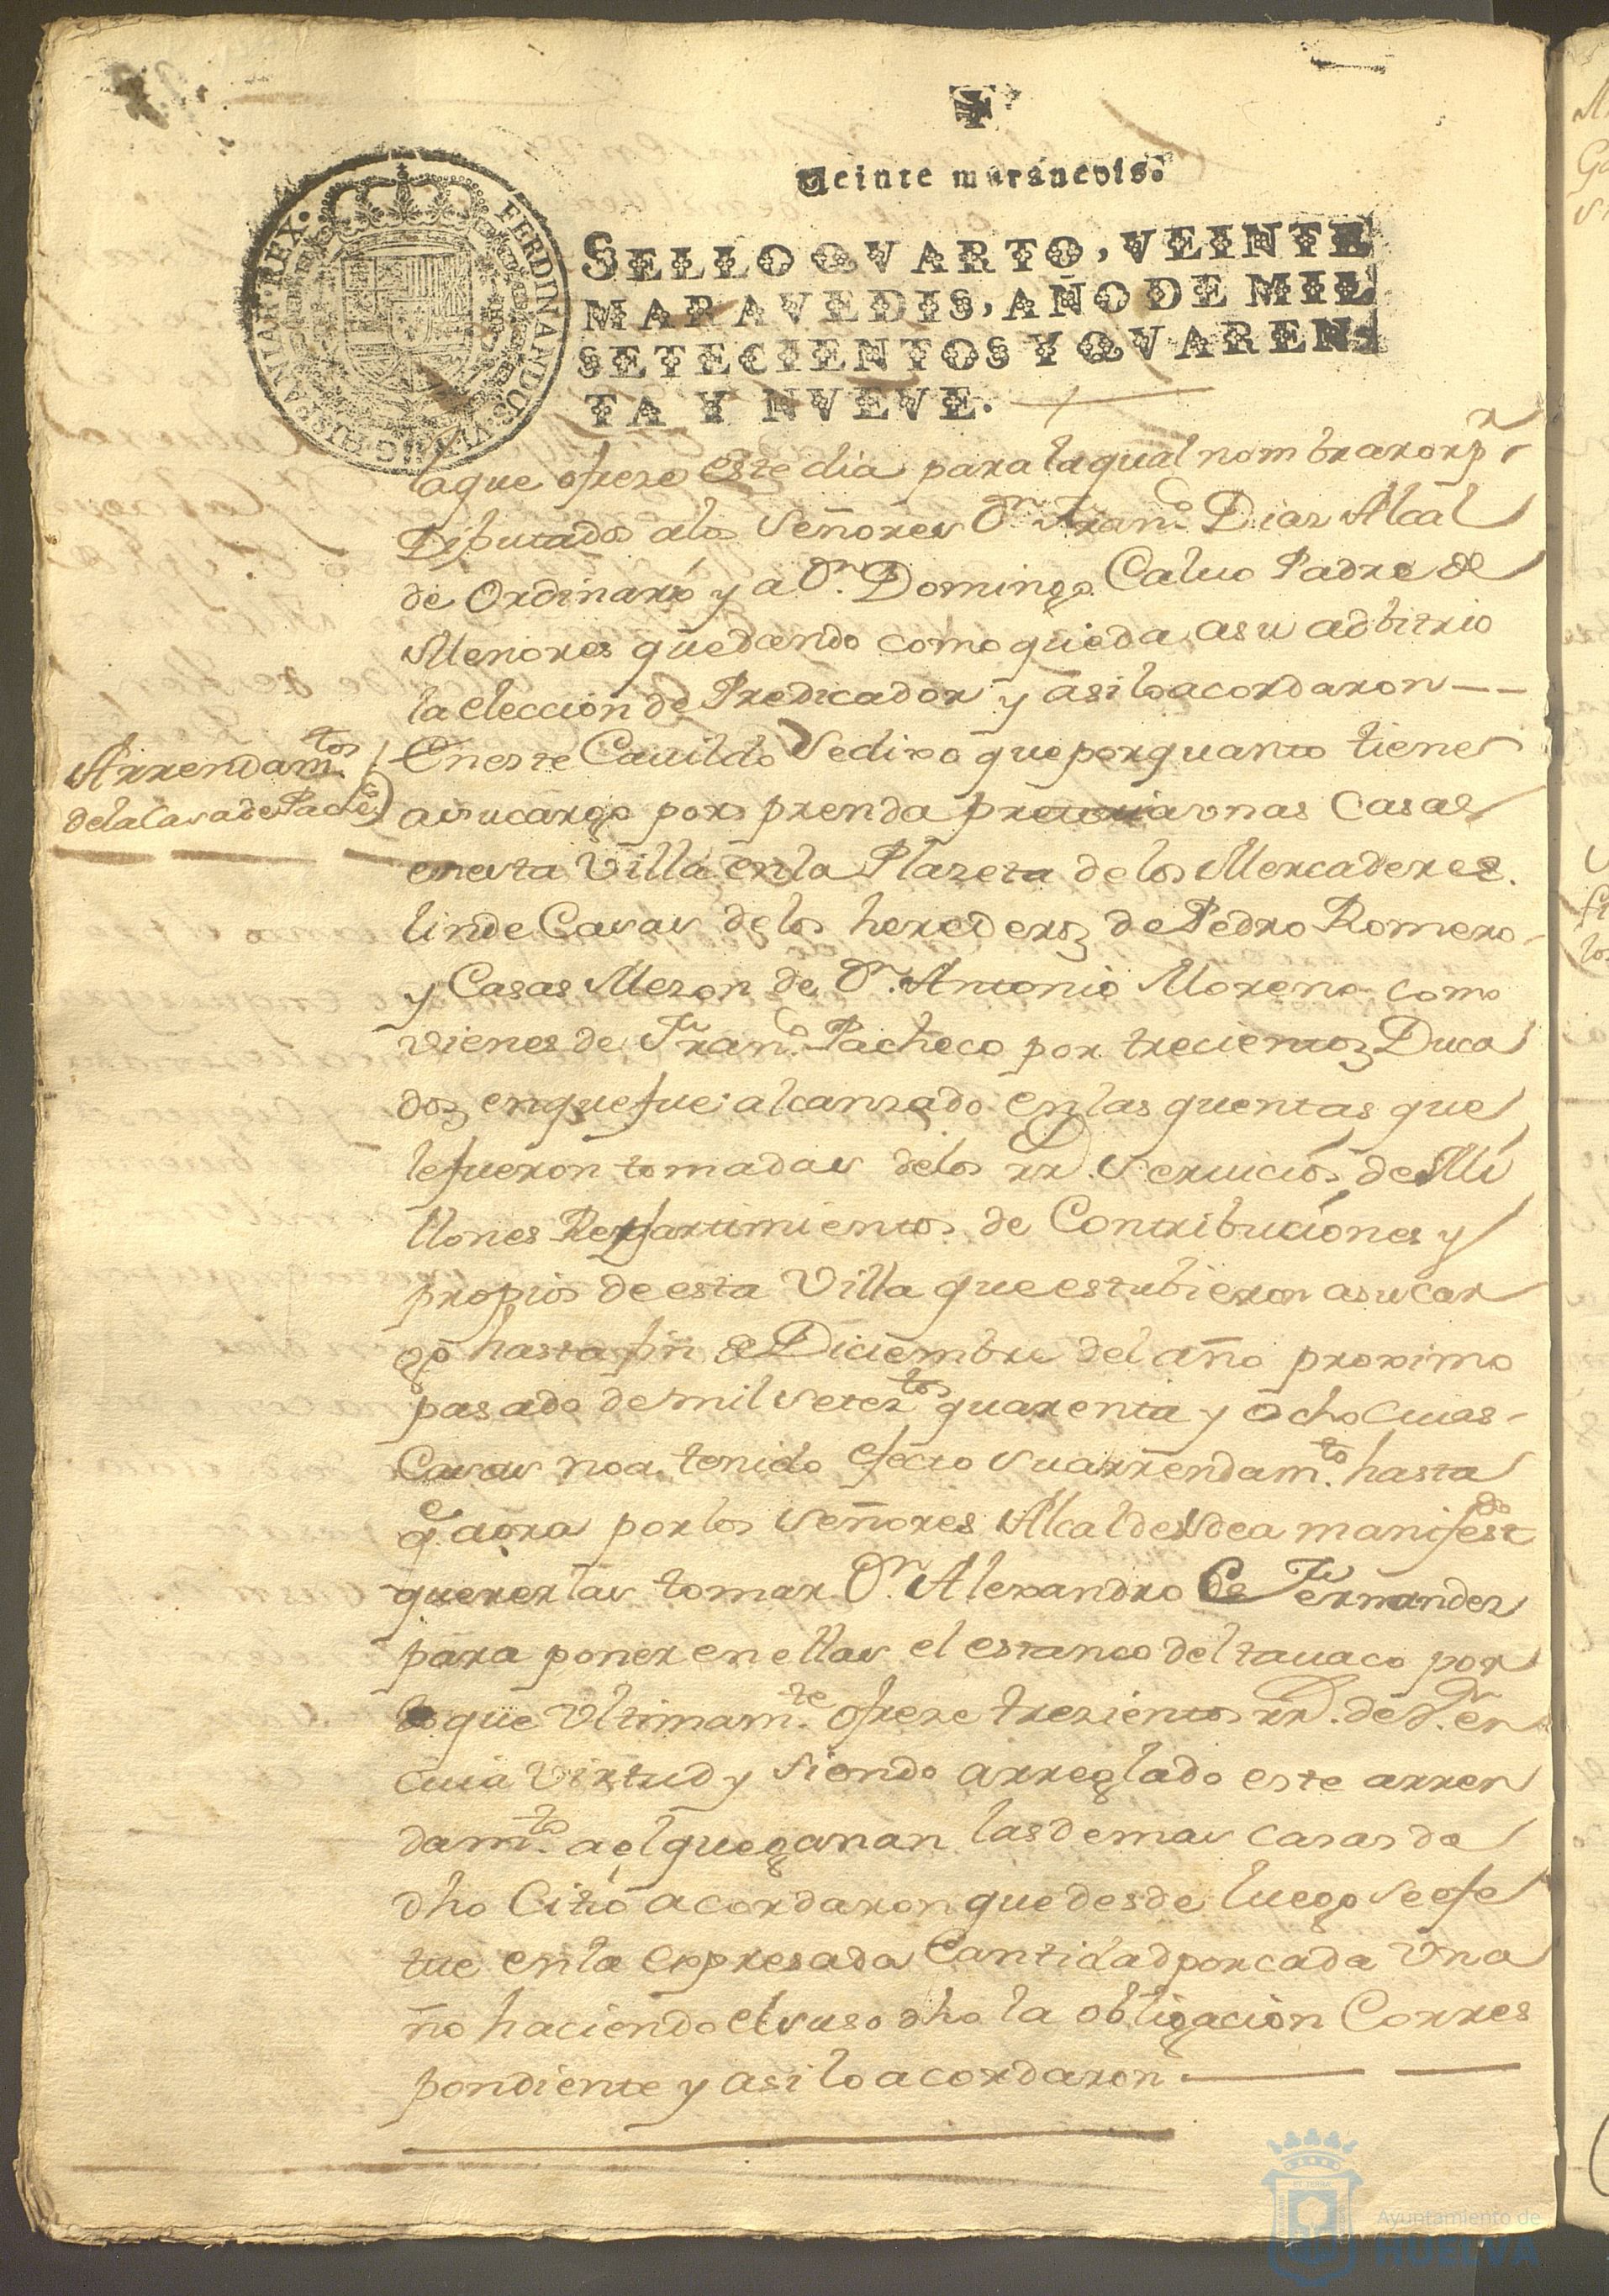 Veinte maravedis.
SELLO QVARTO, VEINTE
MARAVEDIS, AÑO DE MIL
SETECIENTOS Y QVAREN-
TA Y NVEVE.
FERDINANDUS·VI·D·G·HISPANIAR·REX·
laque ofreze este dia para la qual nombraron pr
Diputados alos Señores Dn. Franco. Diaz Alcal
de Ordinario y a Dn. Domingo Caluo Padre de
Menores quedando como queda asu adbitrio
la eleccion de Predicador y asi lo acordaron
Arrendamtos.
dela Casa de Pacheco
En este Cauildo Se dixo que por quanto tiene
asu cargo por prenda pretoria vnas Casas
en esta Villa en la Plazeta de los Mercaderes.
linde Casas de los herederos de Pedro Romero
y Casas Mezon de Dn. Antonio Moreno como
vienes de Franco. Pacheco por trecientos Duca
dos en que fue alcanzado en las quentas que
le fueron tomadas de los rr. Seruicios de Mi
llones Repartimientos de Contribuciones y
propios de esta Villa que estubieron asu car
go hasta fin de Diciembre del año proximo
pasado de mil Setez.tos quarenta y ocho Cuias
Casas no a tenido efecto su arrendamto. hasta
qe. aora por los Señores Alcaldes Sea manifestdo
quererlas tomar Dn. Alexandro de Fernandez
para poner en ellas el estanco del tauaco por
lo que Vltimamte. ofreze trezientos rr. de Vn. en
cuia Virtud y Siendo arreglado este arren
damto. a el que ganan las demas casas de
dho Citio acordaron que desde luego Se efe
tue en la expresada Cantidad por cada Vn a
ño haciendo el suso dho la obligacion Corres
pondiente y asi lo acordaron.
Ayuntamiento de
HUELVA